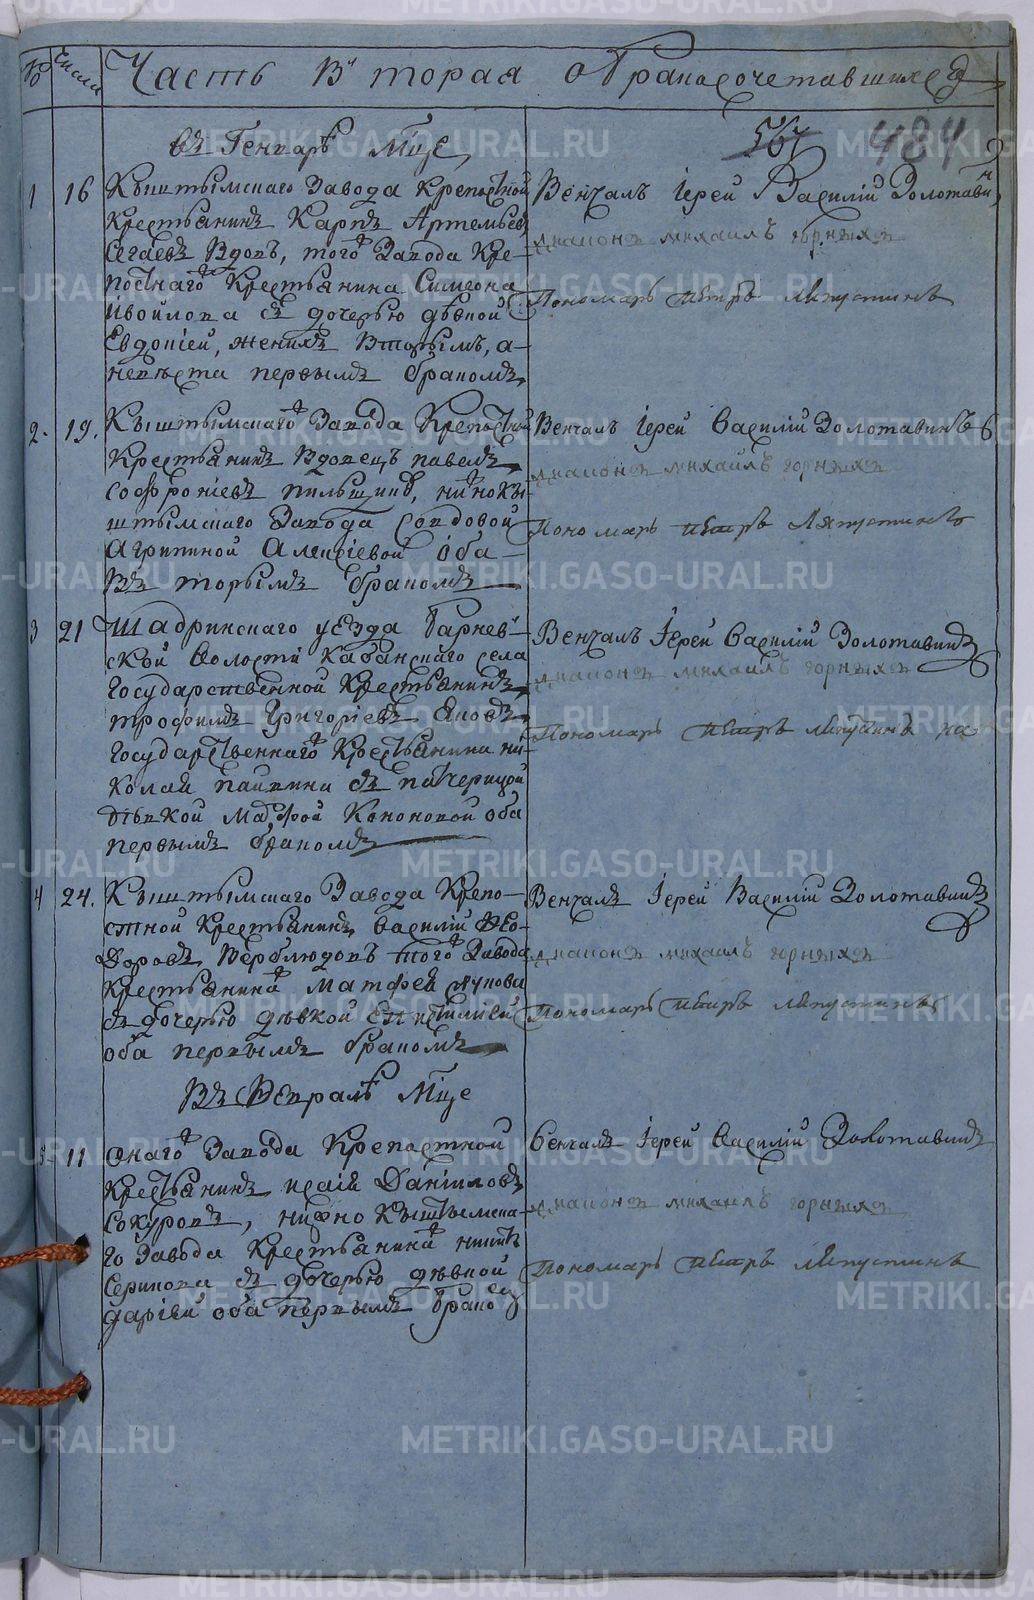 № Число Часть Вторая о Бракосочетавшихся
въ Генварѣ Мцѣ
567 484
1 16 Кыштымскаго Завода Крепостной
Крестьянинъ Карпъ Артемьевъ
Сегаевъ Вдовъ, того Завода Кре-
постнаго Крестьянина Симеона
Ивойлова съ дочерью дѣвкой
Евдокіей, женихъ Вторымъ, а-
невѣста первымъ бракомъ
Венчалъ Іерей Василій Золотавинъ
диаконъ михаилъ горныхъ
Пономарь петръ Ляпустинъ
2. 19. Кыштымскаго Завода Крепостной
Крестьянинъ Вдовецъ павелъ
софроніевъ пильщиковъ, нижнокы-
штымскаго Завода Со вдовой
Агрипиной Алексіевой оба
Вторымъ бракомъ
Венчалъ Іерей Василій Золотавинъ
диаконъ михаилъ горныхъ
Пономарь петръ Ляпустинъ
3 21 Шадринскаго уезда Барнев-
ской Волости Кабанскаго села
Государственной Крестьянинъ
трофимъ Григоріевъ
Государственнаго Крестьянина ни-
колая съ патчерицой
дѣвкой Марфой Кононовой оба
первымъ бракомъ
Венчалъ Іерей Василій Золотавинъ
диаконъ михаилъ горныхъ
Пономарь петръ ляпустинъ
4 24. Кыштымскаго Завода Крепо-
стной Крестьянинъ Василій Фео-
доровъ Верблюдовъ того Завода
Крестьянина Матфея
съ дочерью дѣвкой
оба первымъ бракомъ
Венчалъ Іерей Василій Золотавинъ
диаконъ михаилъ горныхъ
Пономарь петръ ляпустинъ
Въ Февралѣ Мцѣ
5 11 Онаго Завода Крепостной
Крестьянинъ исаія Даніиловъ
Сокуровъ, нижно Кыштымска-
го Завода Крестьянина никиты
Серикова съ дочерью дѣвкой
даріей оба первымъ бракомъ
Венчалъ Іерей Василій Золотавинъ
диаконъ михаилъ горныхъ
Пономарь петръ Ляпустинъ
METRIKI.GASO-URAL.RU